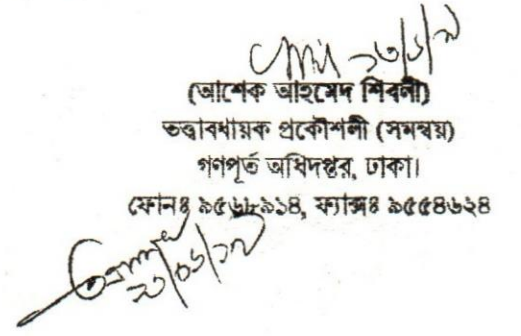 (আশেক আহমেদ শিবলী)
তত্ত্বাবধায়ক প্রকৌশলী (সমন্বয়)
গণপূর্ত অধিদপ্তর, ঢাকা।
ফোনঃ ৯৫৬৮৯১৪, ফ্যাক্সঃ ৯৫৫৪৬২৪